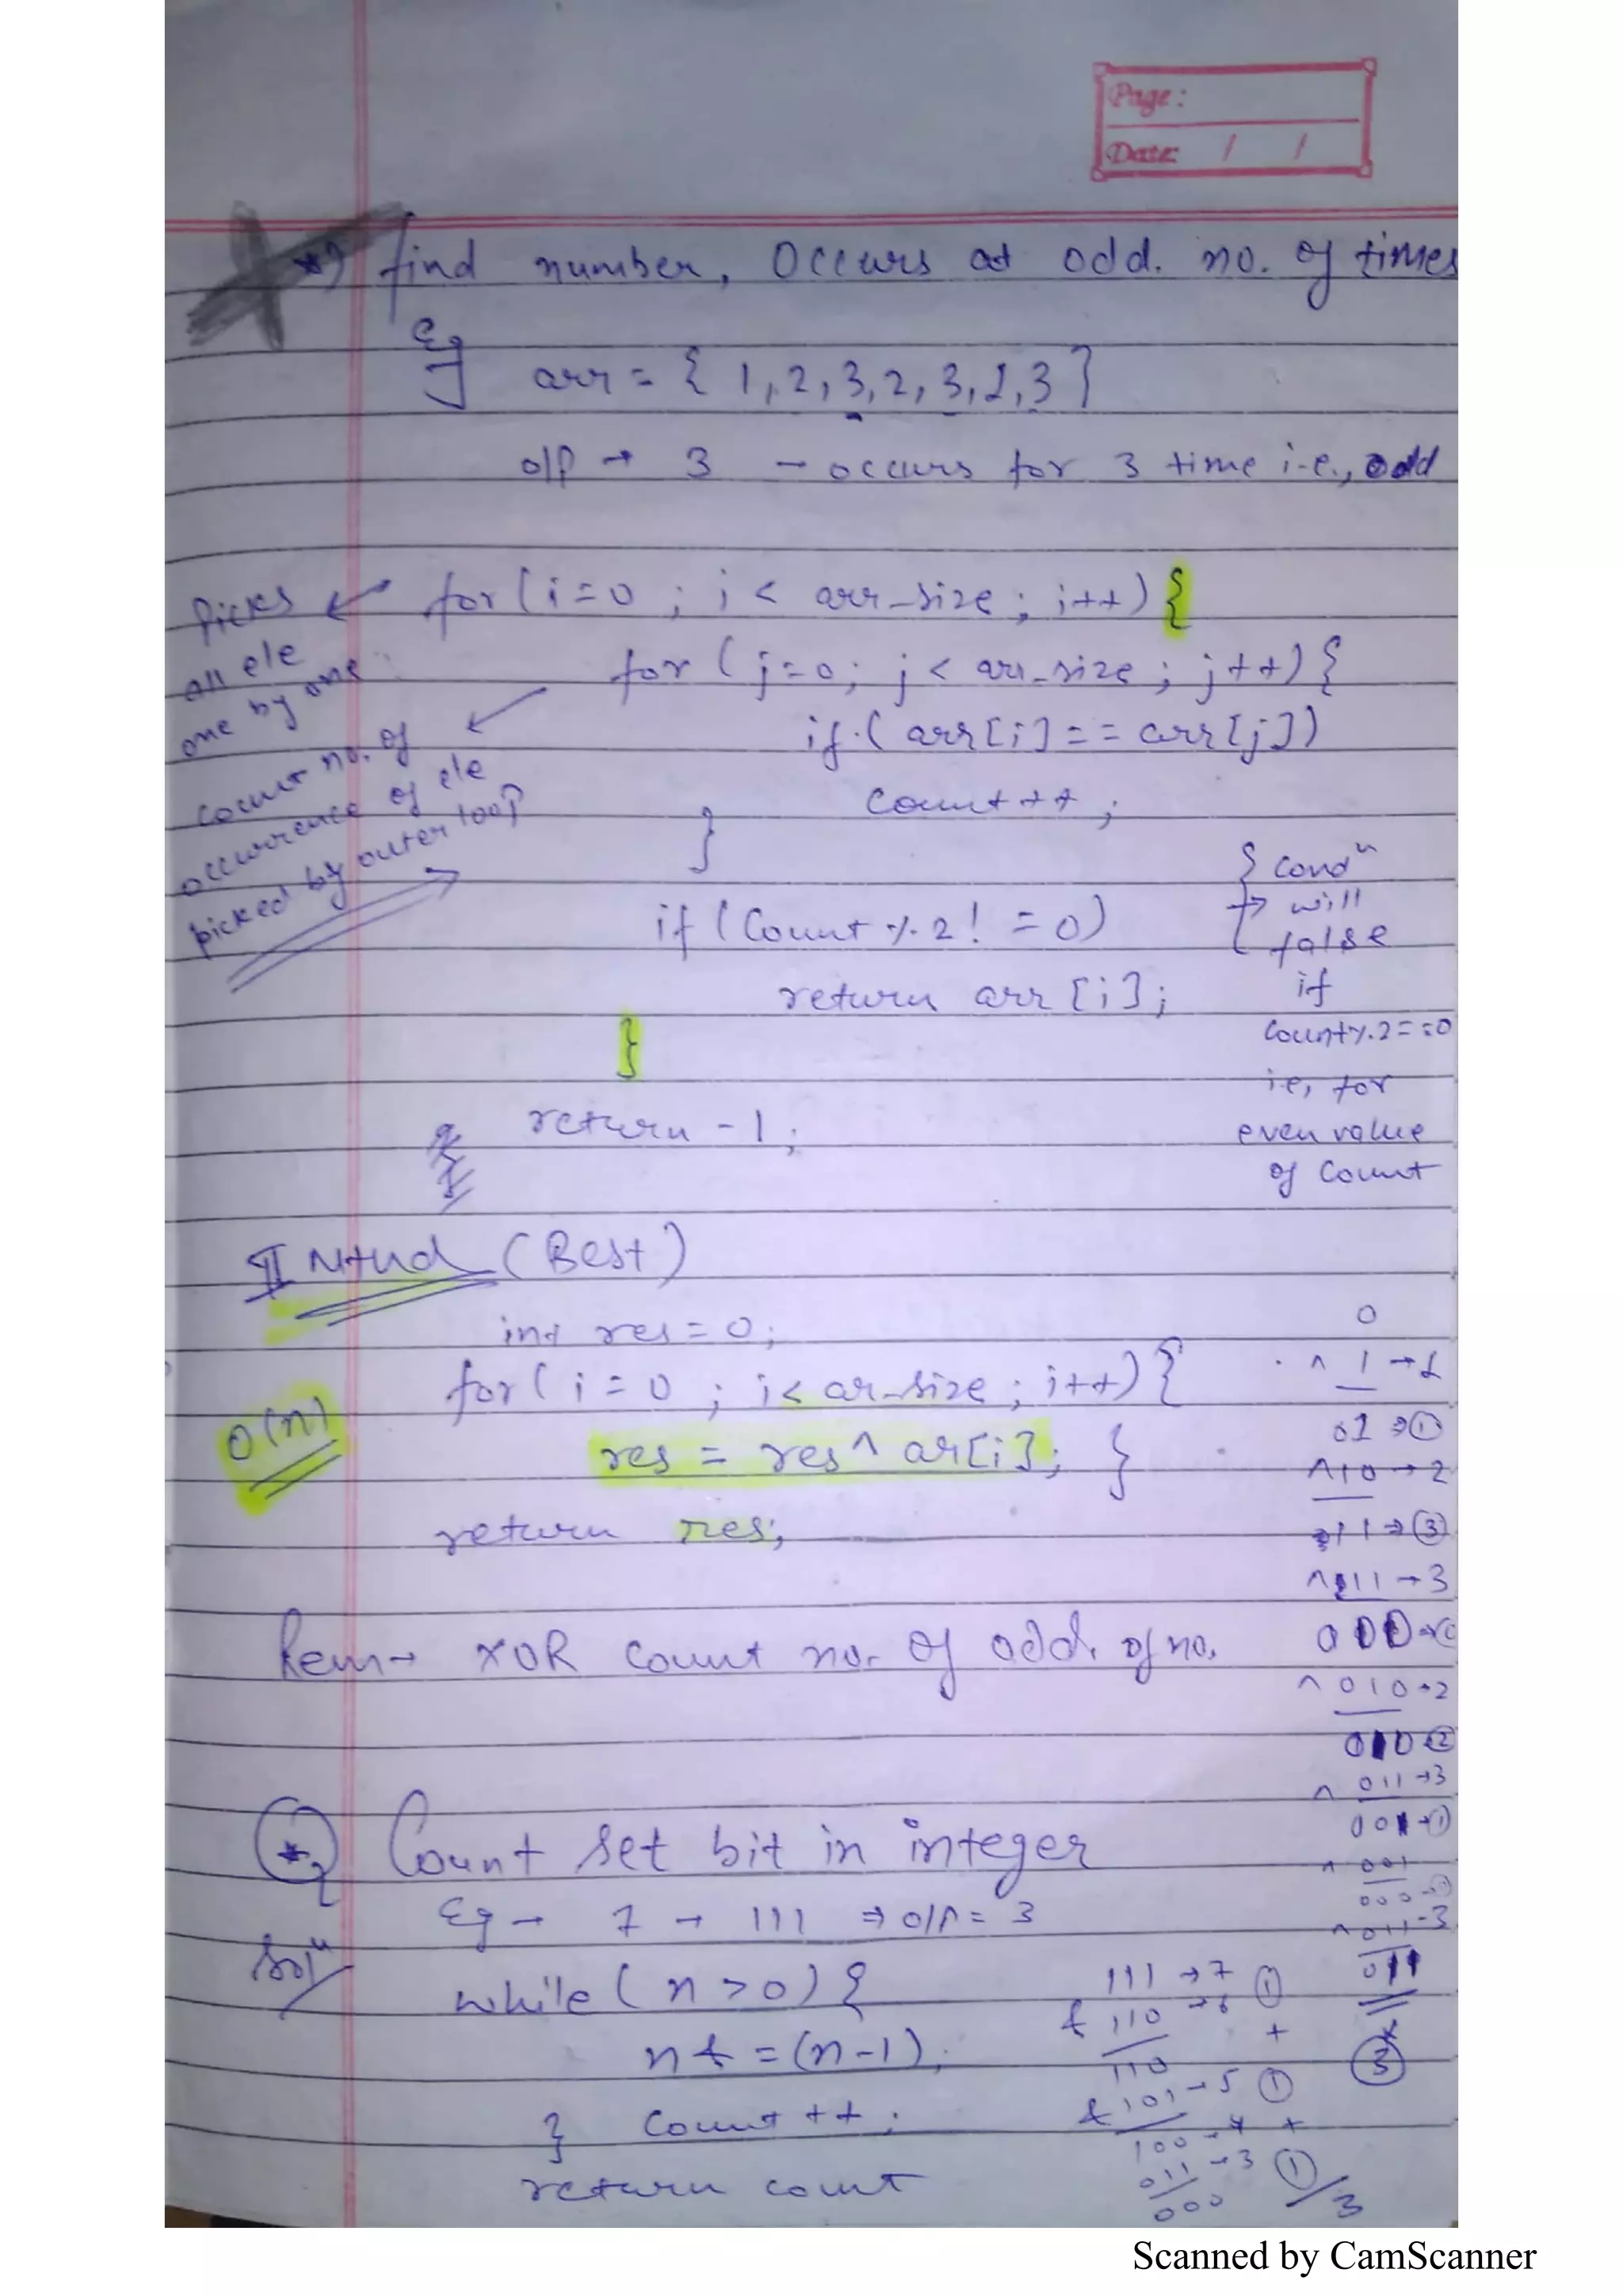 Page:
Date: / /
*) find number, Occurs at odd. no. of times
Eg
arr = { 1, 2, 3, 2, 3, 1, 3 }
o/p → 3 – occurs for 3 time i.e., odd
for ( i = 0 ; i < arr_size ; i++ ) {
Picks
all ele
one by one
for ( j = 0; j < arr_size ; j++) {
count no. of
occurrence of ele
picked by outer loop
if ( arr[i] == arr[j])
count++ ;
}
if ( Count % 2 ! = 0)
return arr [i];
{ condn
→ will
false
if
count%2==0
ie, for
even value
of count
}
return -1 ;
}
II Mthd (Best)
int res = 0;
for ( i = 0 ; i < ar_size ; i++) {
O(n)
res = res ^ ar[i]; }
return res;
Rem → XOR count no. of odd. of no.
0
^ 1 → 1
01 ⇒ ①
^ 10 → 2
11 ⇒ ③
^ 11 → 3
000
^ 010 → 2
010 ②
^ 011 → 3
001 → ①
^ 001
000
^ 011 - 3
011
③
*
Q Count set bit in integer
Eg → 7 → 111 ⇒ o/p = 3
Soln
while ( n > 0) {
n & = (n-1);
} count ++ ;
return count
111 → 7 ①
& 110 → 6
+
110
& 101 → 5 ①
100 → 4 +
011 → 3 ①
000
3
Scanned by CamScanner